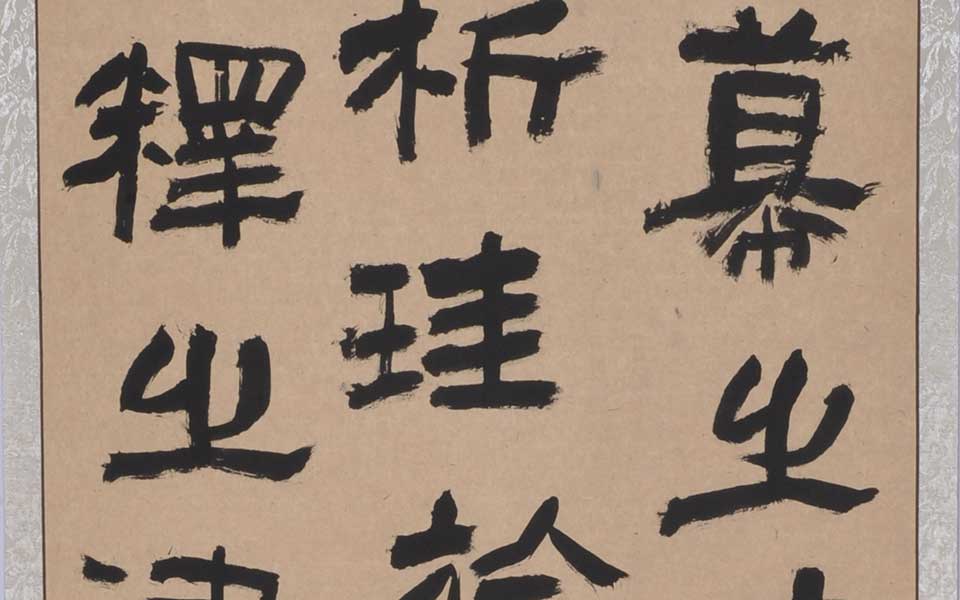 幕之
析珪於
釋之